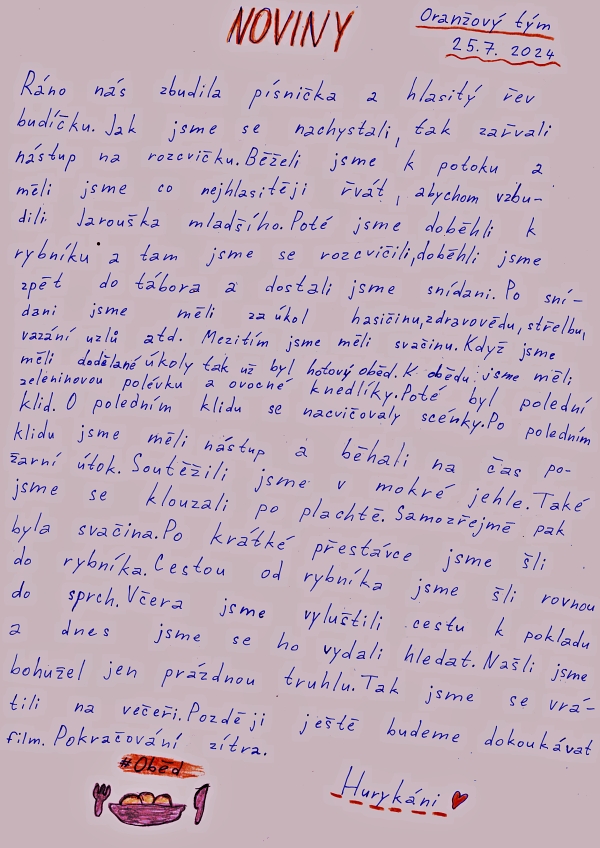 NOVINY
Oranžový tým
25.7. 2024
Ráno nás zbudila písnička a hlasitý řev
budíčku. Jak jsme se nachystali, tak zařvali
nástup na rozcvičku. Běželi jsme k potoku a
měli jsme co nejhlasitěji řvát, abychom vzbu-
dili Jarouška mladšího. Poté jsme doběhli k
rybníku a tam jsme se rozcvičili, doběhli jsme
zpět do tábora a dostali jsme snídani. Po sní-
dani jsme měli za úkol hasičinu, zdravovědu, střelbu,
vazání uzlů atd. Mezitím jsme měli svačinu. Když jsme
měli dodělané úkoly tak už byl hotový oběd. K obědu jsme měli
zeleninovou polévku a ovocné knedlíky. Poté byl polední
klid. O poledním klidu se nacvičovaly scénky. Po poledním
klidu jsme měli nástup a běhali na čas po-
žární útok. Soutěžili jsme v mokré jehle. Také
jsme se klouzali po plachtě. Samozřejmě pak
byla svačina. Po krátké přestávce jsme šli
do rybníka. Cestou od rybníka jsme šli rovnou
do sprch. Včera jsme vyluštili cestu k pokladu
a dnes jsme se ho vydali hledat. Našli jsme
bohužel jen prázdnou truhlu. Tak jsme se vrá-
tili na večeři. Později ještě budeme dokoukávat
film. Pokračování zítra.
#Oběd
Hurykáni